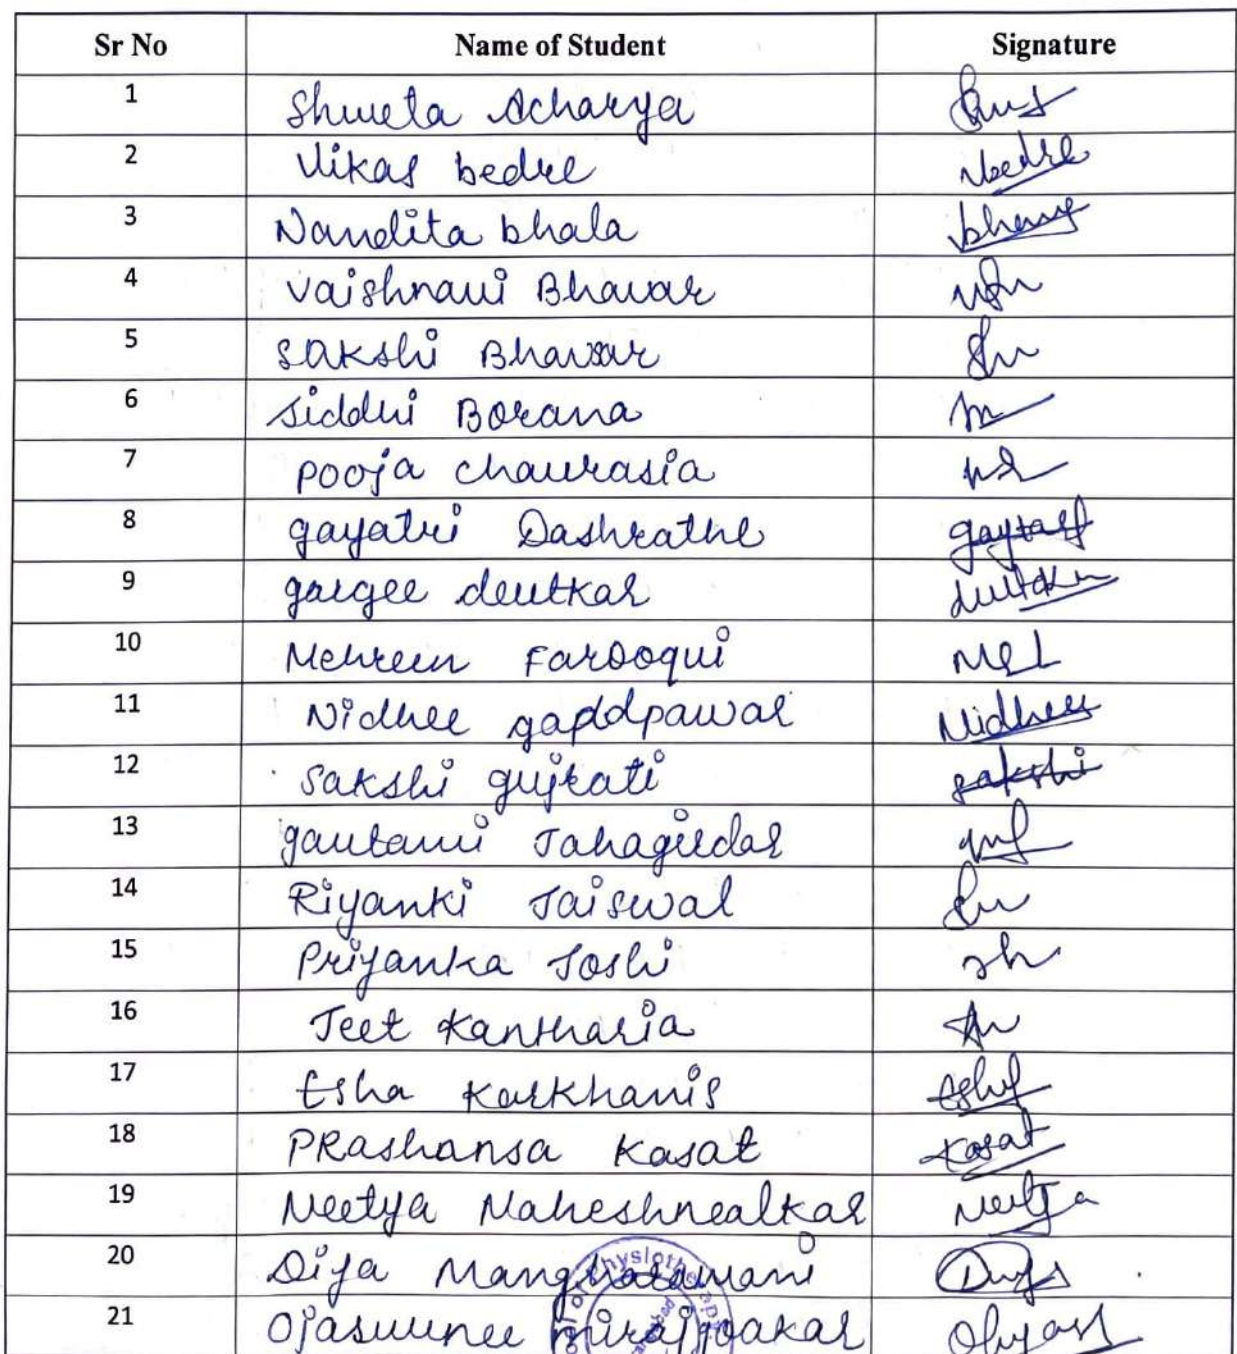 Sr No Name of Student Signature
1 Shweta Acharya
2 Vikas bedre Vbedre
3 Nandita bhala
4 Vaishnavi Bhavar
5 Sakshi Bhavsar
6 Siddhi Borana
7 Pooja Chaurasia
8 gayatri Dashrathe
9 gargee deutkar
10 Mehreen Farooqui
11 Nidhee gaddpawar Nidhee
12 Sakshi gujrati sakshi
13 gautami Jahagirdar
14 Riyanki Jaiswal
15 Priyanka Joshi
16 Jeet Kantharia
17 Esha Karkhanis
18 PRashansa Kasat Kasat
19 Neetya Maheshnealkar Neetya
20 Dija Mangharamani
21 Ojaswinee mirajgoakar